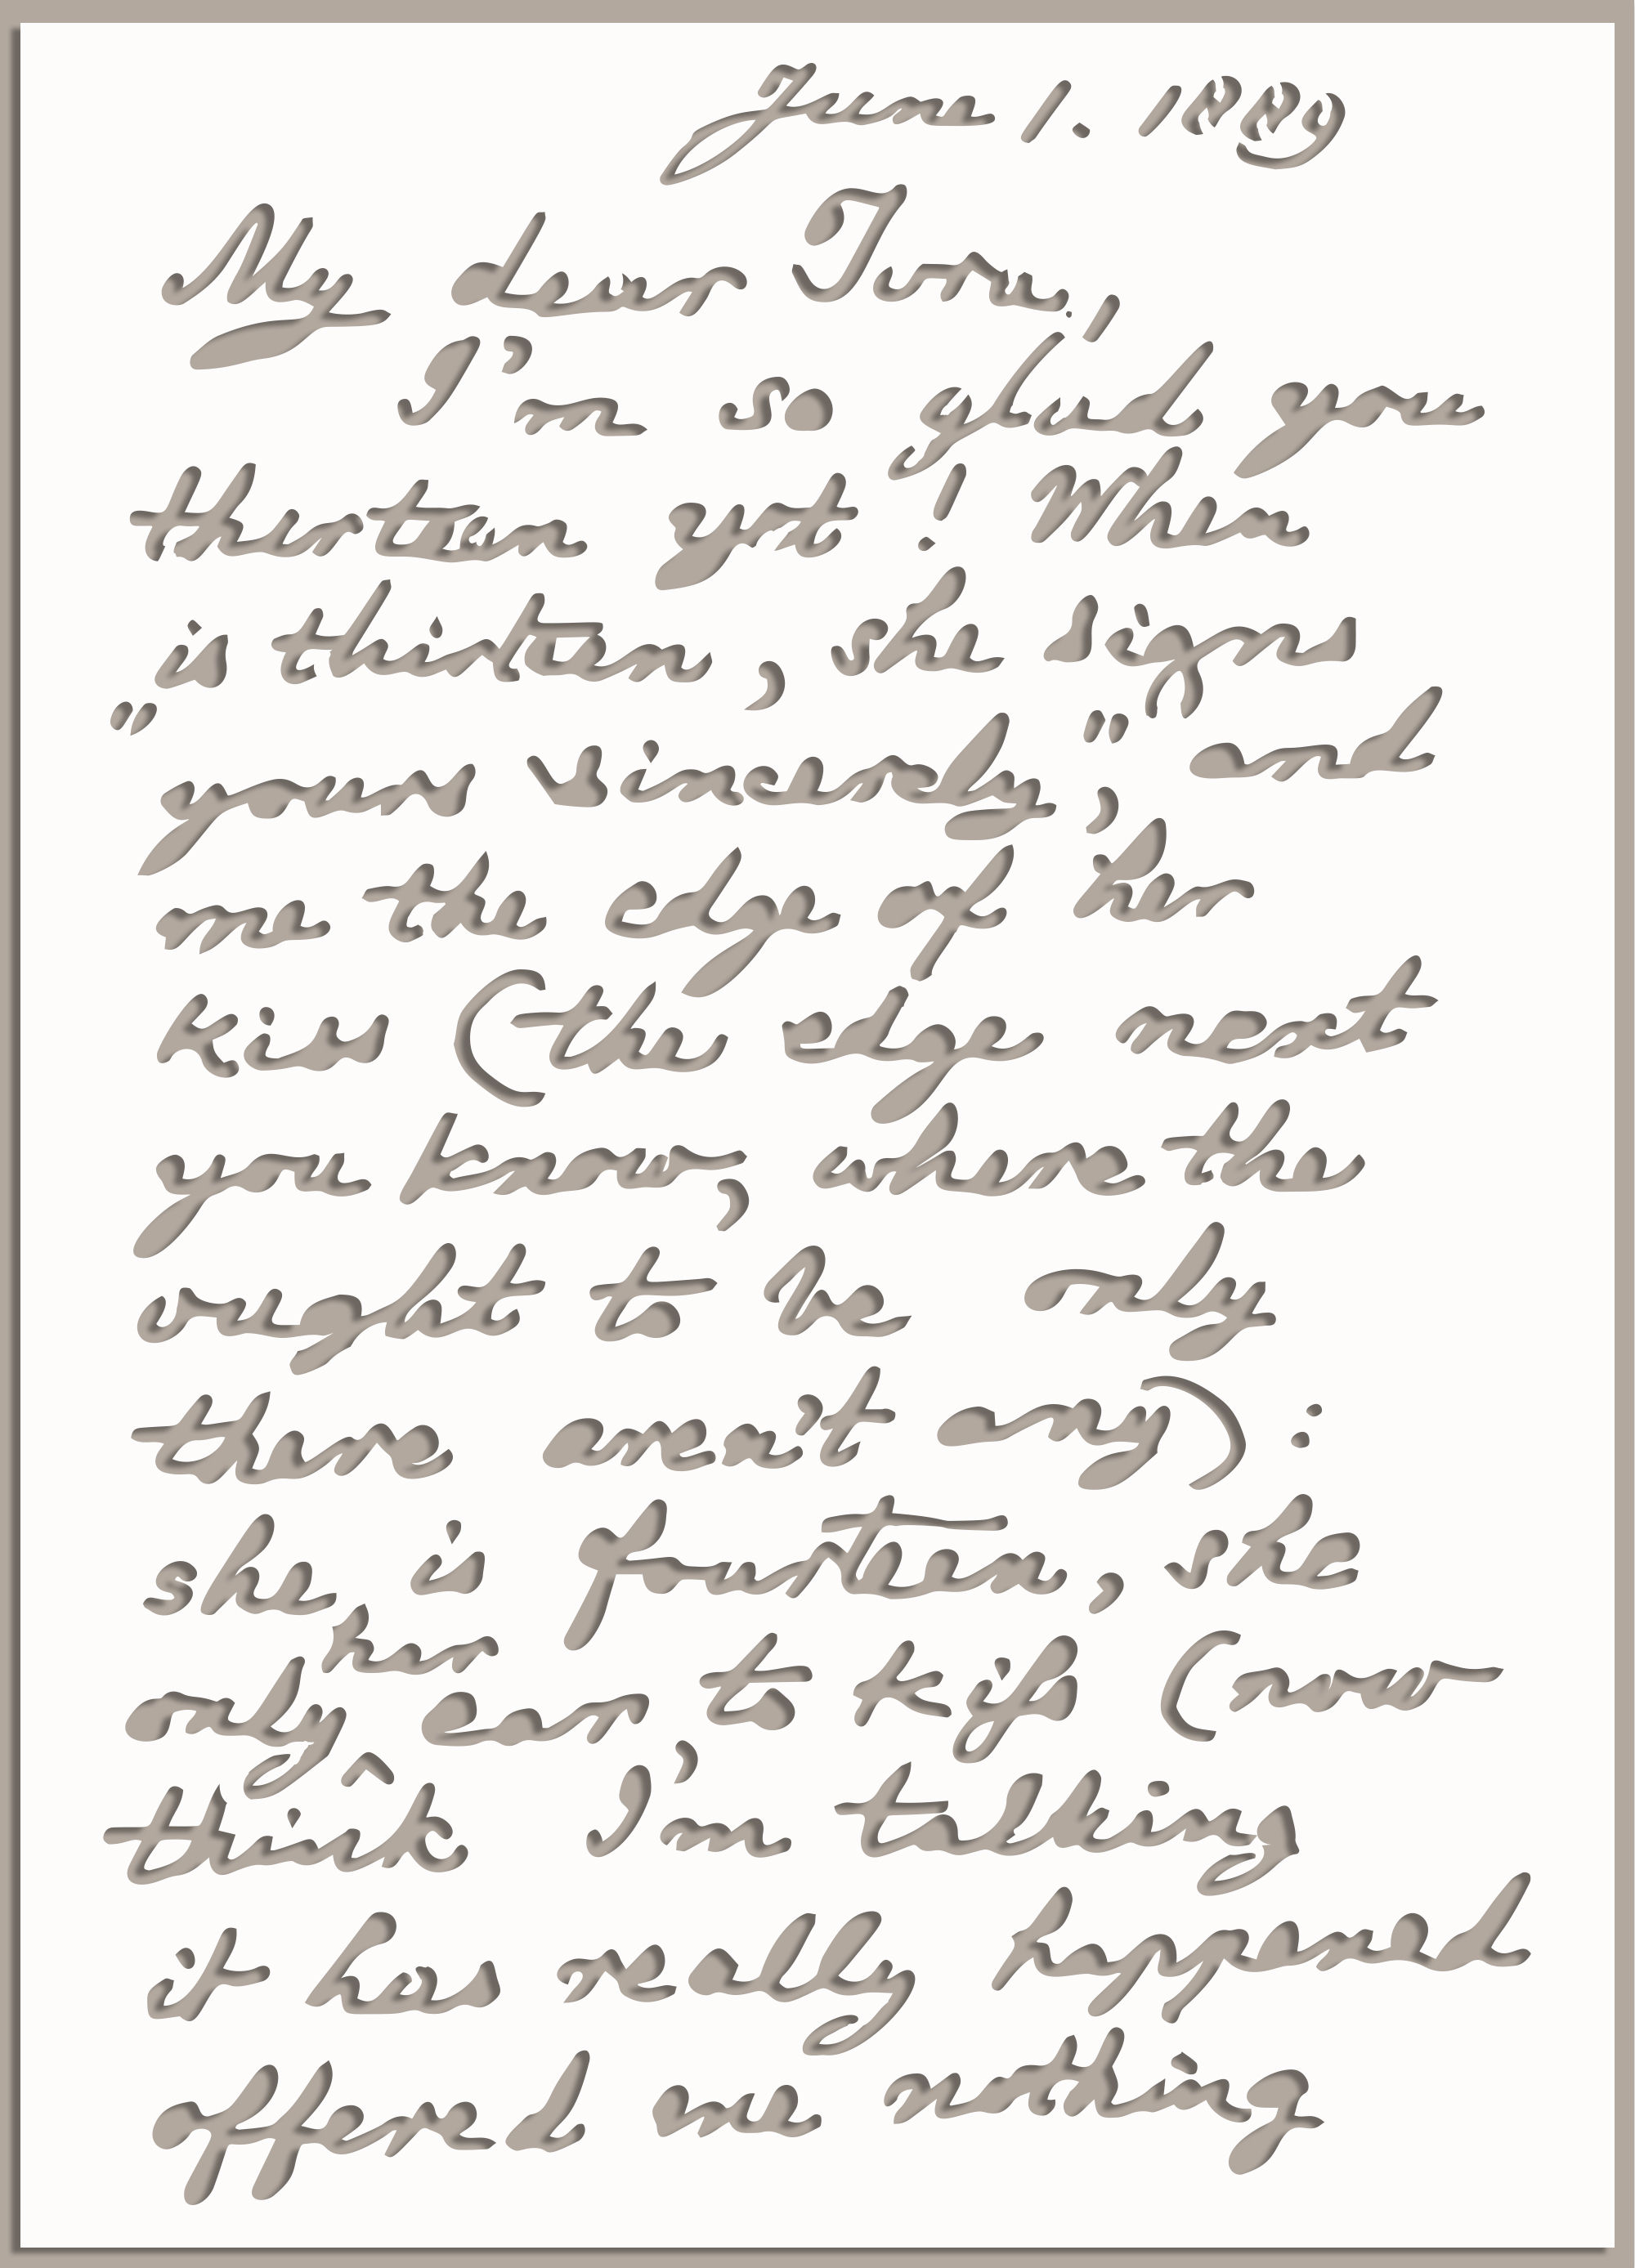 June 1. 1889
My dear Tom,
I'm so glad you
thirteen yet! When
is thirteen, she signs
"yours sincerely", and
me the edge of her
kiss (the edge next
you know, where the
ought to be only
there aren't any):
she is fourteen, she
only her ear to kiss (now
think I'm talking
it has really happened
offered me nothing